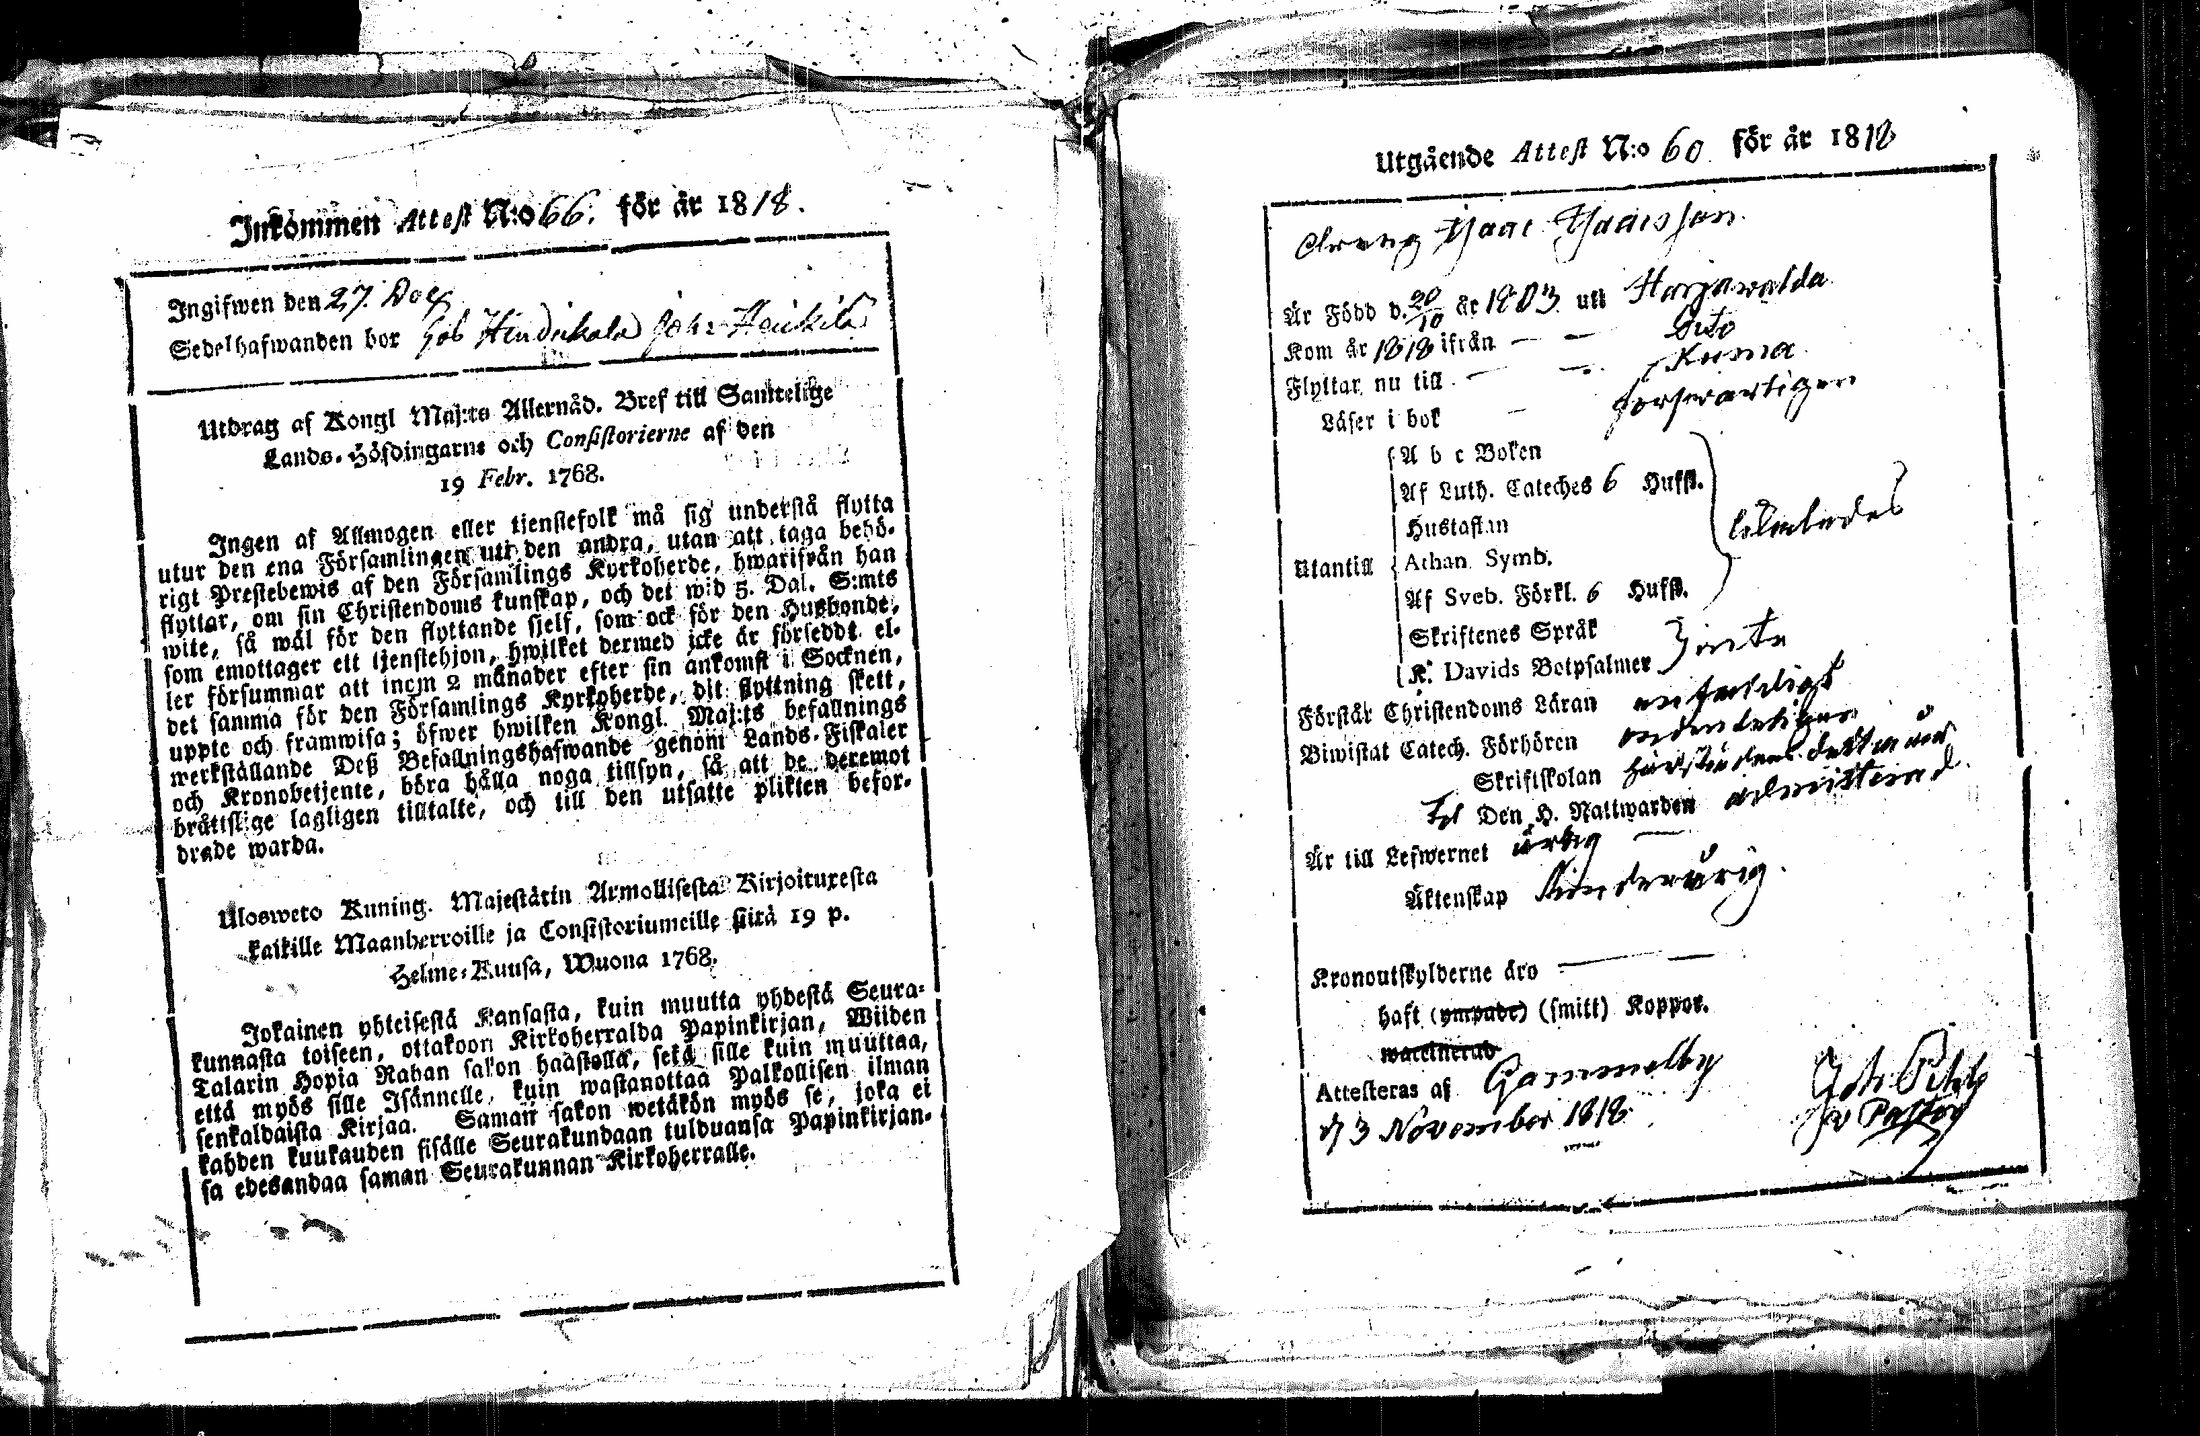 Inkommen Attest N:o 66. för år 1818.
Ingifwen den 27. Dec
Sedelhafwanden bor Hindrikala Joh: Heikilä
Utdrag af Kongl Maj:ts Allernåd. Bref till Samtelige
Lands-Höfdingarne och Consistorierne af den
19 Febr. 1768.
Ingen af Allmogen eller tienstefolk må sig understå flytta
utur den ena Församlingen uti den andra, utan att taga behö-
rigt Prestebewis af den Församlings Kyrkoherde, hwarifrån han
flyttar, om sin Christendoms kunskap, och det wid 5. Dal. S:mts
wite, så wäl för den flyttande sjelf, som ock för den Husbonde,
som emottager ett tjenstehjon, hwilket dermed icke är försedt el-
ler försummar att inom 2 månader efter sin ankomst i Socknen,
det samma för den Församlings Kyrkoherde, dit flyttning skett,
uppte och framwisa; öfwer hwilken Kongl. Maj:ts befallnings
werkställande Deß Befallningshafwande genom Lands-Fiskaler
och Kronobetjente, böra hålla noga tillsyn, så att de deremot
bråttslige lagligen tilltalte, och till den utsatte plikten befor-
drade warda.
Ulosweto Kuning. Majestätin Armollisesta Kirjoituxesta
kaikille Maanherroille ja Consistoriumeille siitä 19 p.
Helme-Kuusa, Wuona 1768.
Jokainen yhteisestä Kansasta, kuin muutta yhdestä Seura-
kunnasta toiseen, ottakoon Kirkoherralda Papinkirjan, Wiiden
Talarin Hopia Rahan sakon haastolla, sekä sille kuin muuttaa,
että myös sille Isännelle, kuin wastanottaa Palkollisen ilman
senkaldaista Kirjaa. Saman sakon wetäkön myös se, joka ei
kahden kuukauden sisälle Seurakundaan tulduansa Papinkirjan-
sa edesandaa saman Seurakunnan Kirkoherralle.
Utgående Attest N:o 60 för år 1818
Dreng Isaac Isacsson
Är Född d. 20/10 år 1803 uti Harjawalda
Kom år 1818 ifrån — — Dito
Flyttar nu till — — Kumo
Läser i bok — förswarligen
A b c Boken
Af Luth. Cateches 6 Hufst.
Hustaflan
Utantill Athan. Symb.
Af Sveb. Förkl. 6 Hufst.
Skriftenes Språk
K. Davids Botpsalmer Inte
Förstår Christendoms Läran enfaldigt
Biwistat Catech. Förhören ordenteligen
Skriftskolan
Den H. Nattwarden
Är till Lefwernet ärlig —
Äktenskap Minderårig.
Kronoutskylderne äro —
haft (ympade) (smitt) Koppor.
waccinerad
Attesteras af Gammelby
d 3 November 1818
v Pastor